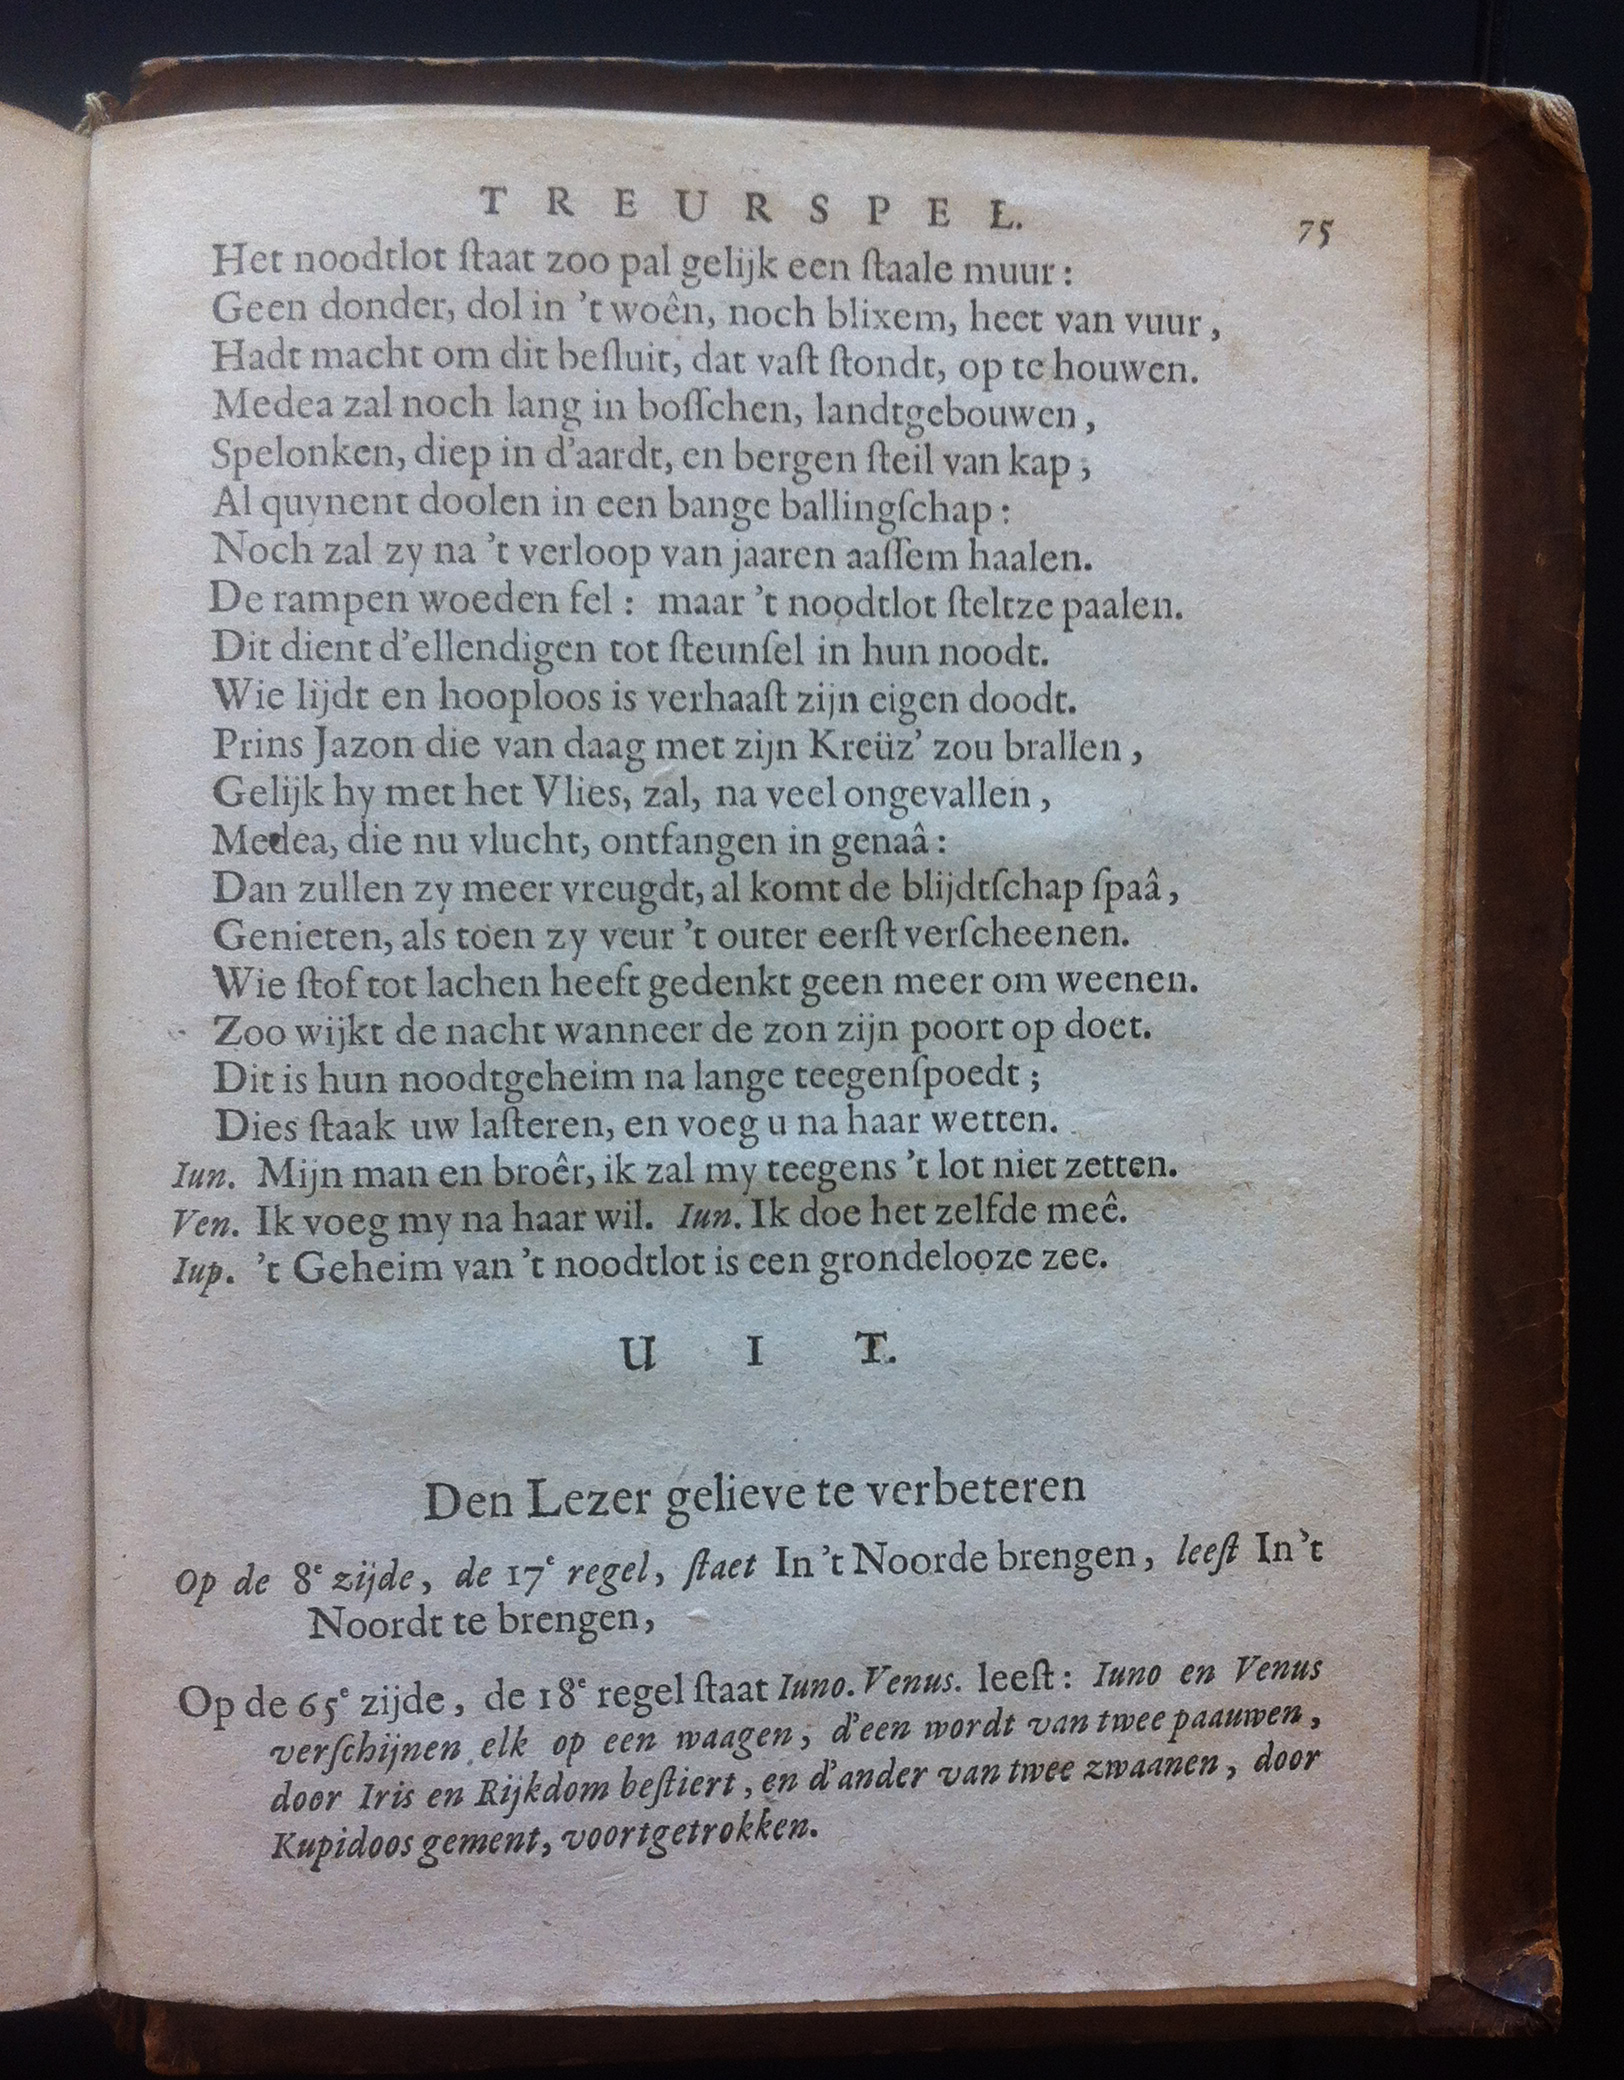 TREURSPEL. 75
Het noodtlot ſtaat zoo pal gelijk een ſtaale muur:
Geen donder, dol in 't woên, noch blixem, heet van vuur,
Hadt macht om dit beſluit, dat vaſt ſtondt, op te houwen.
Medea zal noch lang in boſſchen, landtgebouwen,
Spelonken, diep in d'aardt, en bergen ſteil van kap,
Al quynent doolen in een bange ballingſchap:
Noch zal zy na 't verloop van jaaren aaſſem haalen.
De rampen woeden fel: maar 't noodtlot ſteltze paalen.
Dit dient d'ellendigen tot ſteunſel in hun noodt.
Wie lijdt en hooploos is verhaaſt zijn eigen doodt.
Prins Jazon die van daag met zijn Kreüz' zou brallen,
Gelijk hy met het Vlies, zal, na veel ongevallen,
Medea, die nu vlucht, ontfangen in genaâ:
Dan zullen zy meer vreugdt, al komt de blijdtſchap ſpaâ,
Genieten, als toen zy veur 't outer eerſt verſcheenen.
Wie ſtof tot lachen heeft gedenkt geen meer om weenen.
Zoo wijkt de nacht wanneer de zon zijn poort op doet.
Dit is hun noodtgeheim na lange teegenſpoedt;
Dies ſtaak uw laſteren, en voeg u na haar wetten.
Iun. Mijn man en broêr, ik zal my teegens 't lot niet zetten.
Ven. Ik voeg my na haar wil. Iun. Ik doe het zelfde meê.
Iup. 't Geheim van 't noodtlot is een grondelooze zee.
UIT.
Den Lezer gelieve te verbeteren
Op de 8e zijde, de 17e regel, ſtaet In 't Noorde brengen, leeſt In 't
Noordt te brengen,
Op de 65e zijde, de 18e regel ſtaat Iuno. Venus. leeſt: Iuno en Venus
verſchijnen elk op een waagen, d'een wordt van twee paauwen,
door Iris en Rijkdom beſtiert, en d'ander van twee zwaanen, door
Kupidoos gement, voortgetrokken.